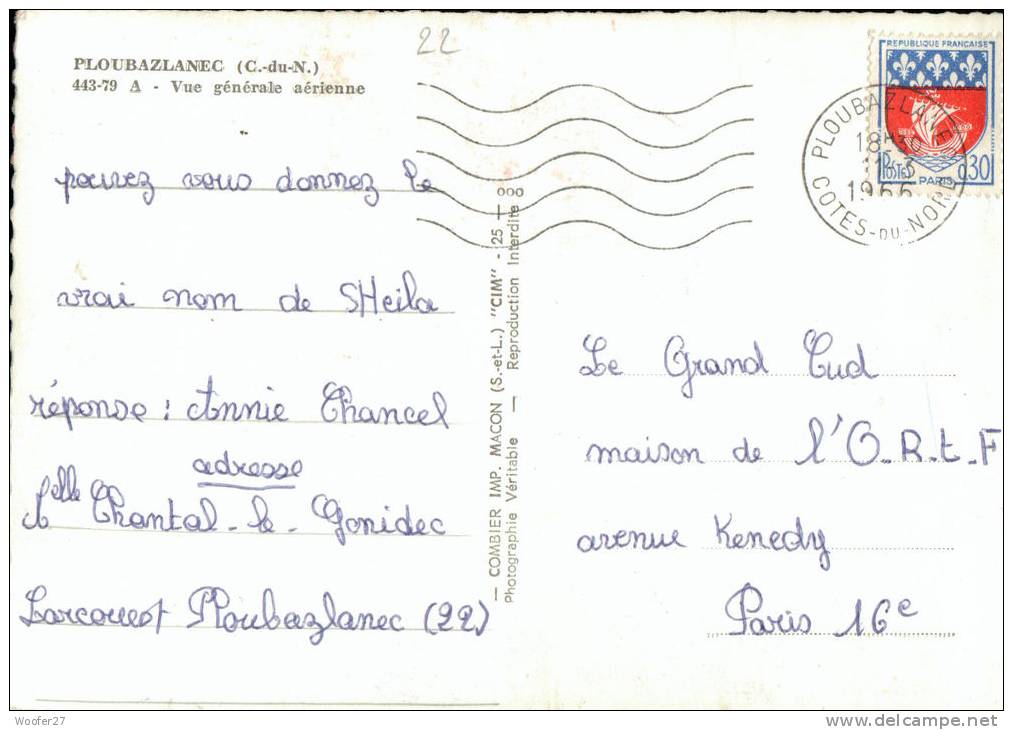 22
PLOUBAZLANEC (C.-du-N.)
443-79 A - Vue générale aérienne
pouvez vous donnez le
vrai nom de SHeila
réponse : Annie Chancel
adresse
Chantal-le-Gonidec
Larcouest Ploubazlanec (22)
— COMBIER IMP. MACON (S.-et-L.) "CIM" - 25 —
Photographie Véritable — Reproduction Interdite
REPUBLIQUE FRANÇAISE
POSTES
0,30
PARIS
PLOUBAZLANEC
18H30
1966
COTES-DU-NORD
Le Grand Cud
maison de l'O.R.t.F
avenue Kenedy
Paris 16e
Woofer27
www.delcampe.net